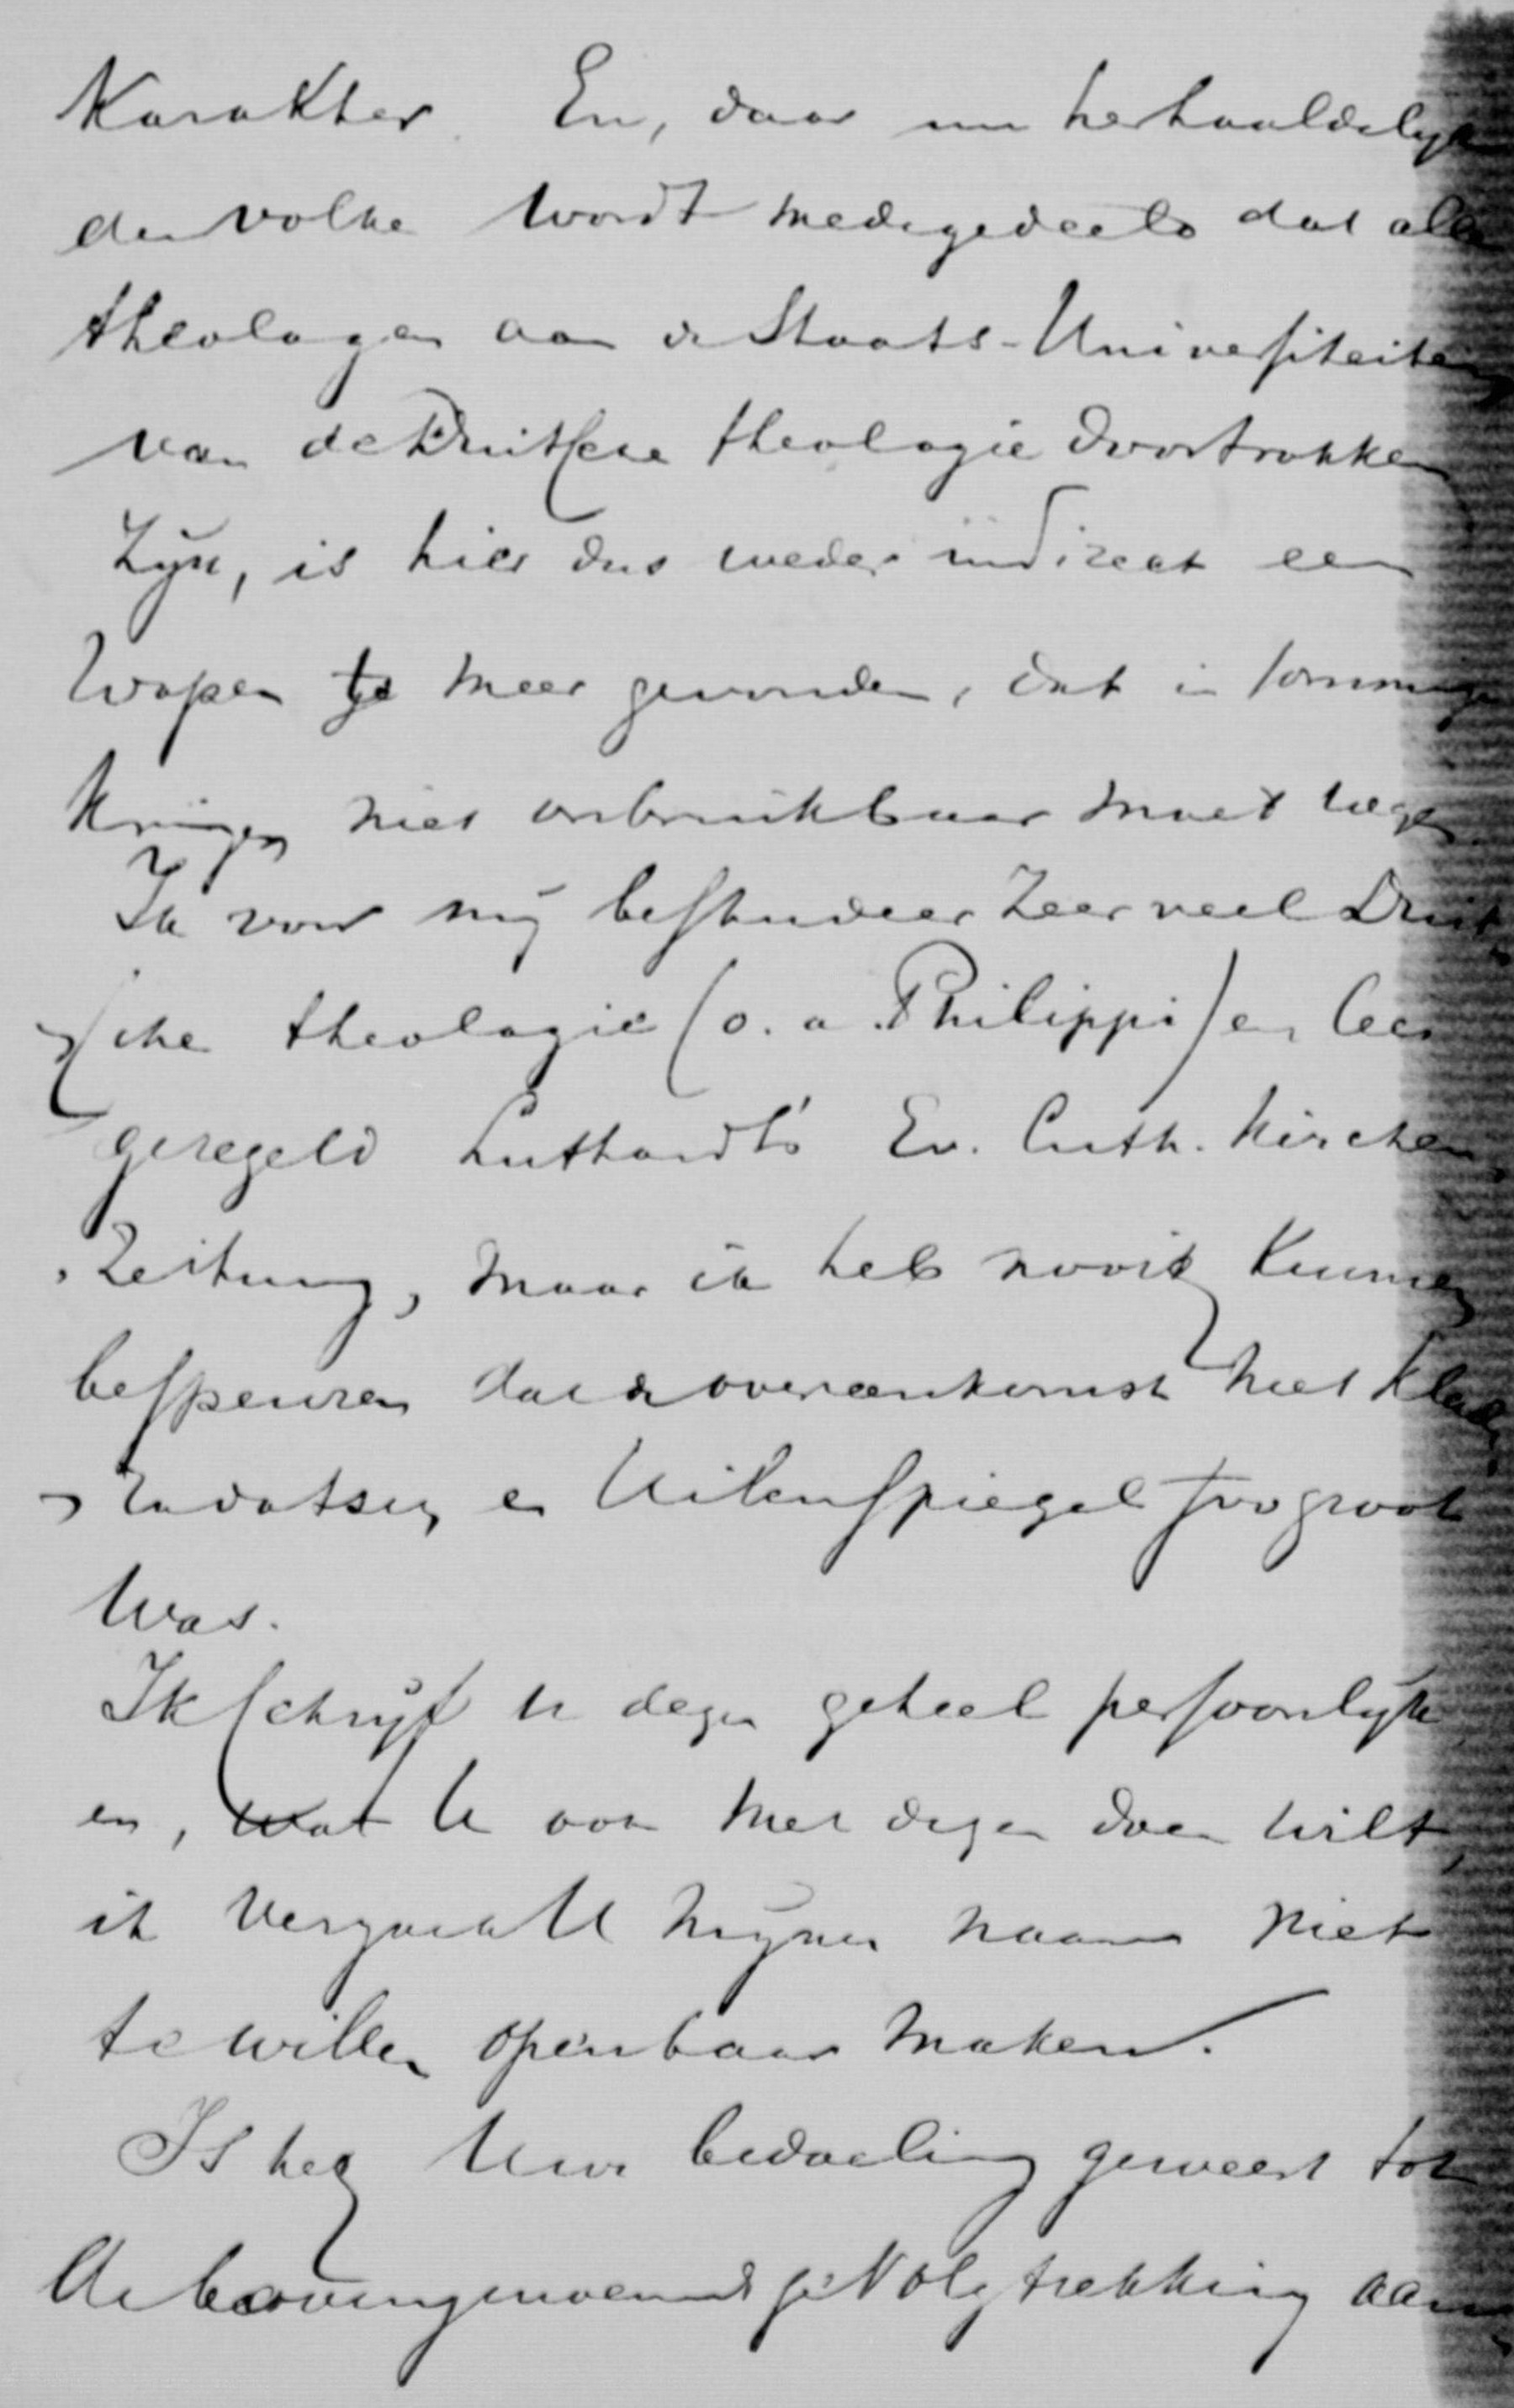 Karakter. En, daar nu herhaaldelijk
den volke wordt medegedeeld dat alle
theologen aan de Staats-Universiteiten
van de Duitsche theologie doortrokken
zijn, is hier dus weder indirect een
wapen te meer gevonden, dat in sommige
kringen niet onbruikbaar moet
Ik voor mij bestudeer zeer veel Duit-
sche theologie (o.a. Philippi) en lees
geregeld Luthardt's Ev. Luth. Kirchen-
Zeitung, maar ik heb nooit kunnen
bespeuren dat de overeenkomst met
en Uilenspiegel zoo groot
was.
Ik schrijf U dezen geheel persoonlijk
en, wat U ook met dezen doen wilt,
ik verzoek U mijnen naam niet
te willen openbaar maken.
Is het Uwe bedoeling geweest tot
de bovengenoemde gevolgtrekking aan-